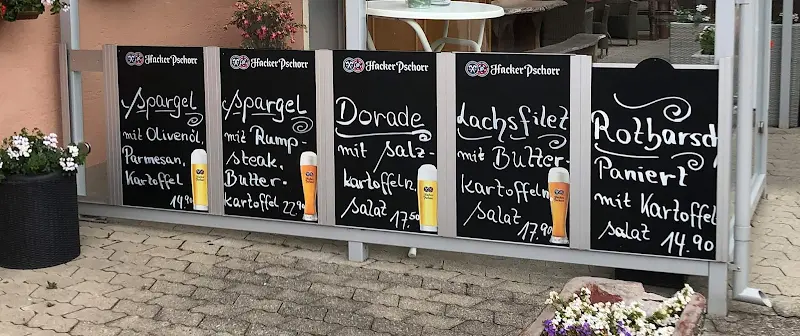 Hacker-Pschorr
Spargel
mit Olivenöl,
Parmesan,
Kartoffel
14.90
Hacker-Pschorr
Spargel
mit Rump-
steak,
Butter-
kartoffel 22.90
Hacker-Pschorr
Dorade
mit Salz-
kartoffeln,
Salat 17.50
Hacker-Pschorr
Lachsfilet
mit Butter-
kartoffeln
Salat 17.90
Rotbarsch
Paniert
mit Kartoffel
Salat 14.90